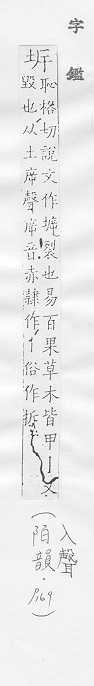 字鑑
坼
恥格切說文作㙤裂也易百果草木皆甲丨又
毀也从土㡿聲㡿音赤隸作丨俗作拆
入聲
(陌韻·P169)